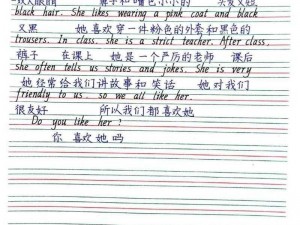 鼻子和嘴巴小小的 头发又短
black hair. She likes wearing a pink coat and black
又黑 她喜欢穿一件粉色的外套和黑色的
trousers. In class. she is a strict teacher. After class.
裤子 在课上 她是一个严厉的老师 课后
she often tells us stories and jokes. She is very
她经常给我们讲故事和笑话 她对我们
friendly to us. so we all like her.
很友好 所以我们都喜欢她
Do you like her?
你喜欢她吗